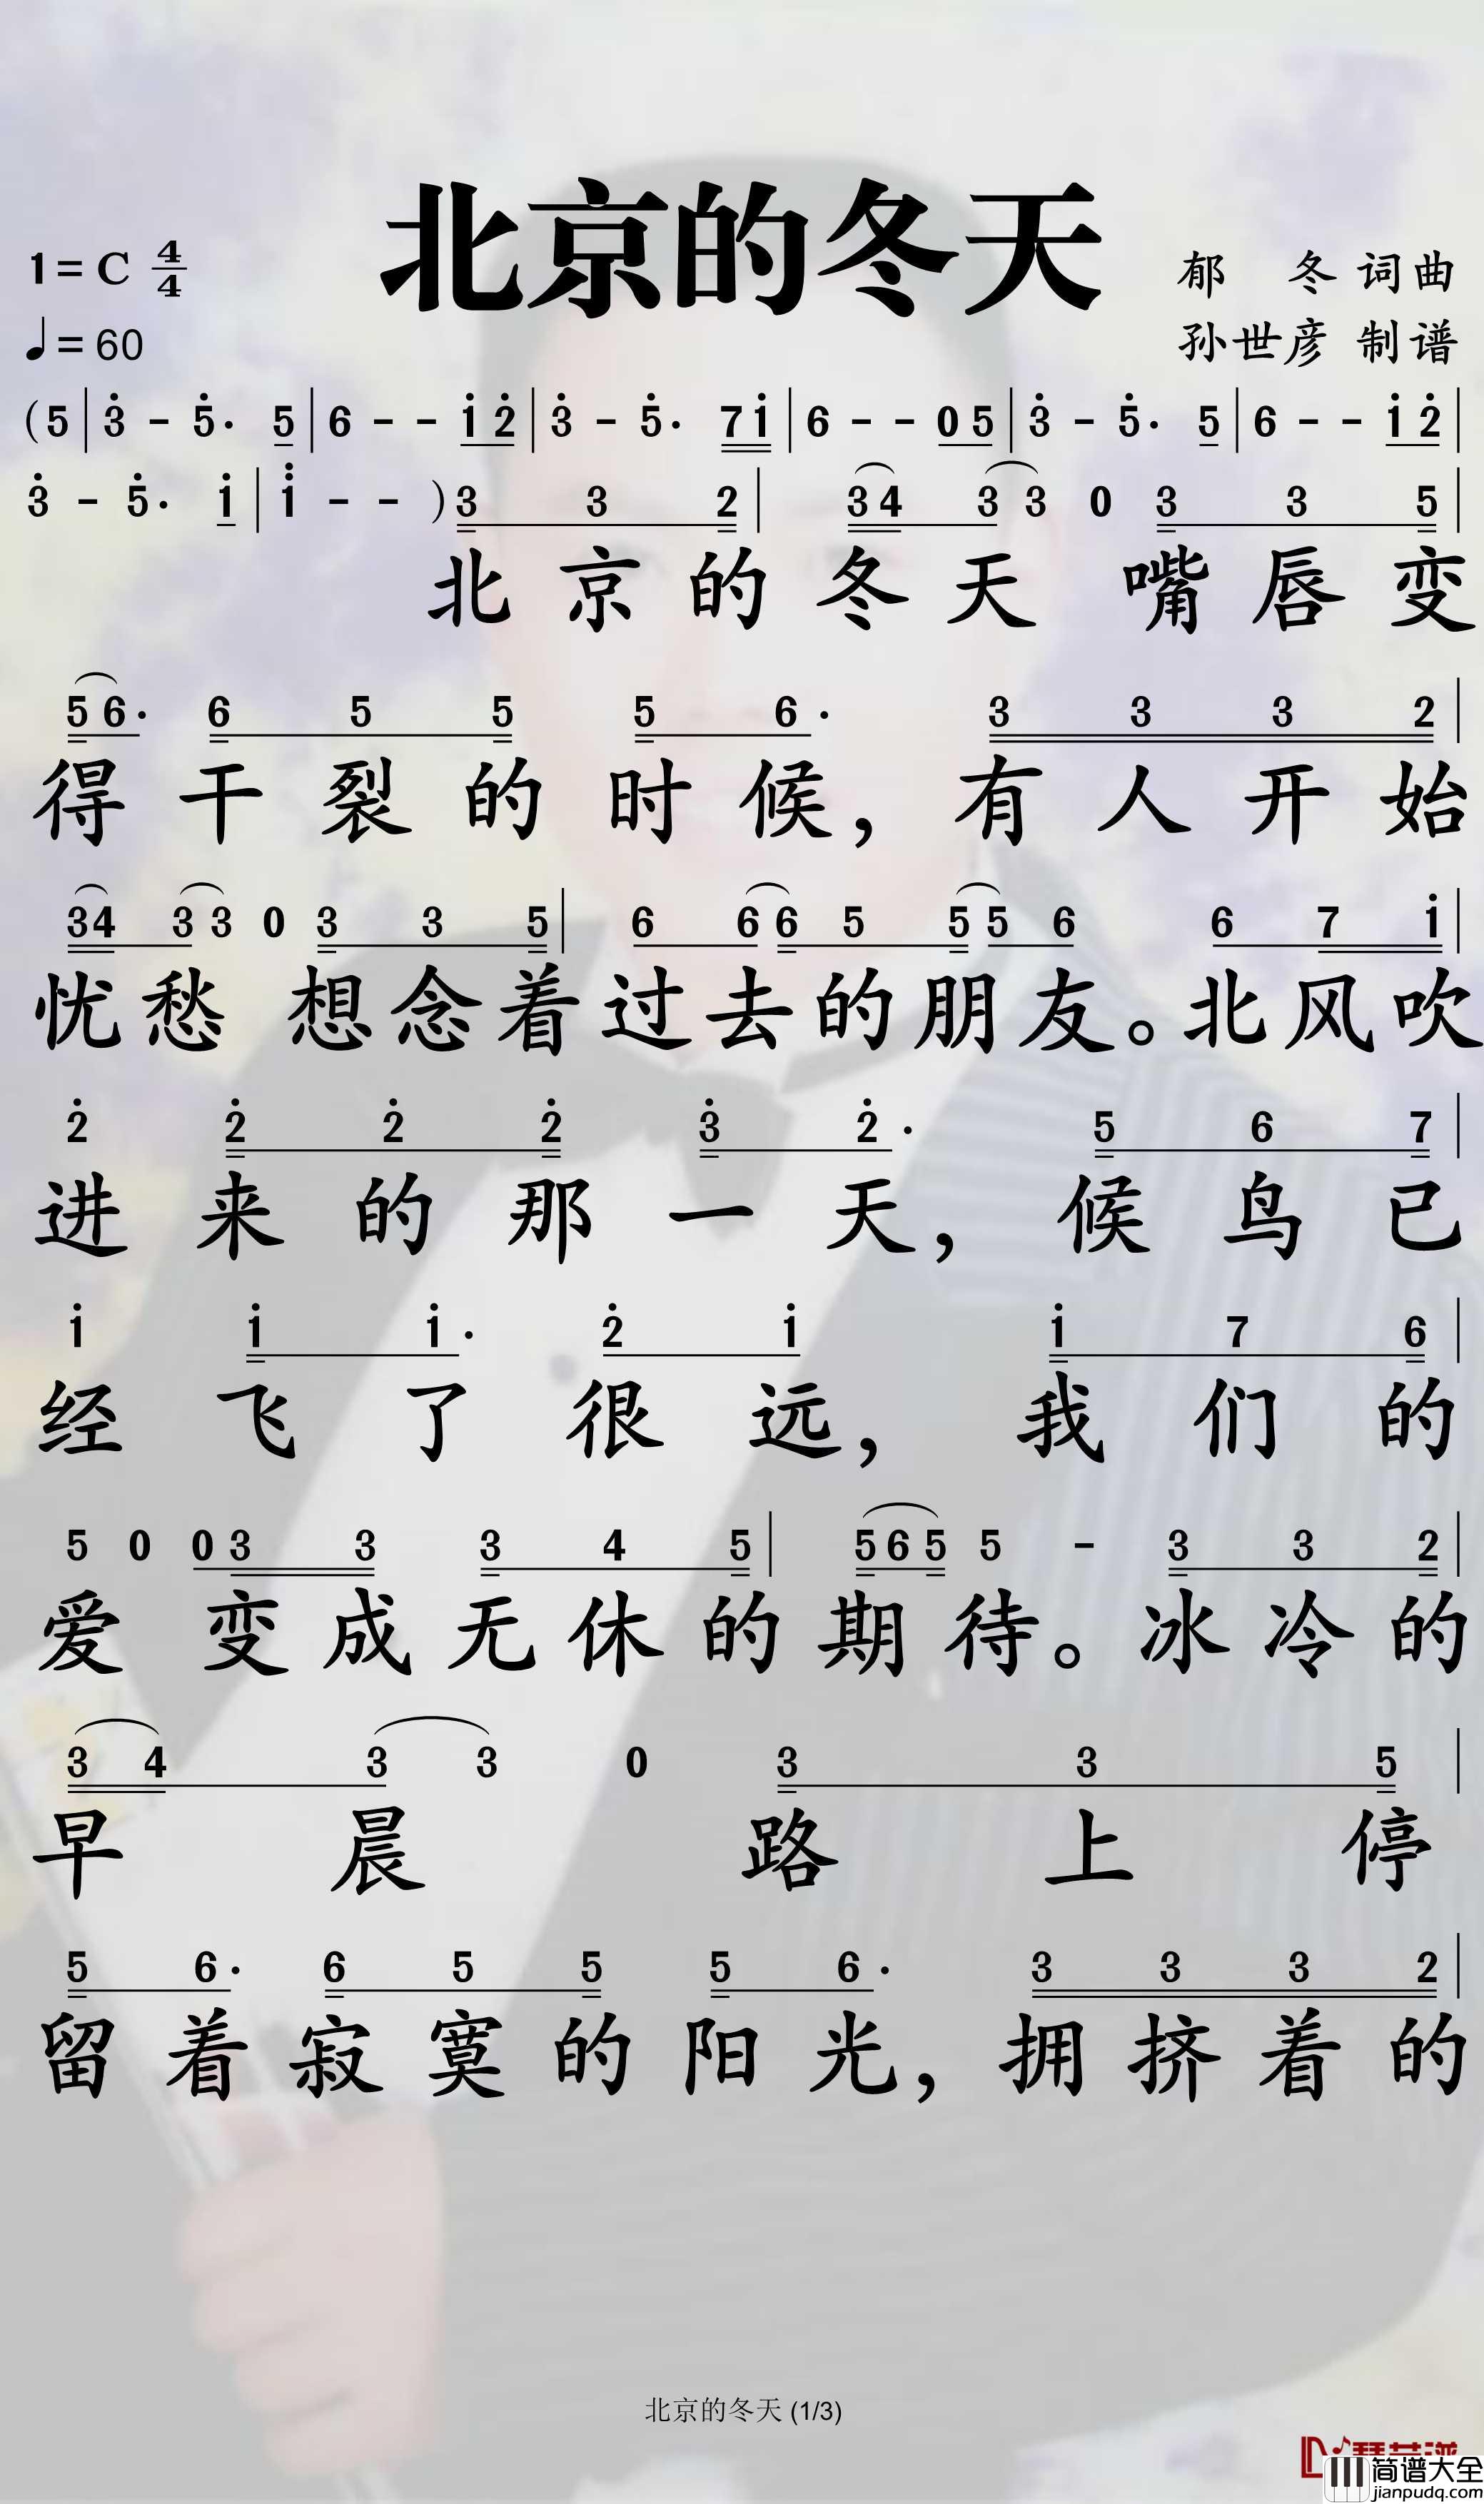 北京的冬天
1=C 4/4
♩=60
郁 冬 词曲
孙世彦 制谱
(5 | 3̇ - 5̇. 5 | 6 - - 1̇ 2̇ | 3̇ - 5̇. 7 1̇ | 6 - - 0 5 | 3̇ - 5̇. 5 | 6 - - 1̇ 2̇ |
3̇ - 5̇. 1̇ | 1̇ - - ) 3 3 2 | 3 4 3 3 0 3 3 5 |
北京的冬天 嘴唇变
5 6. 6 5 5 5 6. 3 3 3 2 |
得干裂的时候，有人开始
3 4 3 3 0 3 3 5 | 6 6 6 5 5 5 6 6 7 1̇ |
忧愁 想念着过去的朋友。北风吹
2̇ 2̇ 2̇ 2̇ 3̇ 2̇. 5 6 7 |
进来的那一天，候鸟已
1̇ 1̇ 1̇. 2̇ 1̇ 1̇ 7 6 |
经飞了很远，我们的
5 0 0 3 3 3 4 5 | 5 6 5 5 - 3 3 2 |
爱 变成无休的期待。冰冷的
3 4 3 3 0 3 3 5 |
早晨 路上停
5 6. 6 5 5 5 6. 3 3 3 2 |
留着寂寞的阳光，拥挤着的
北京的冬天 (1/3)
简谱大全
jianpudq.com